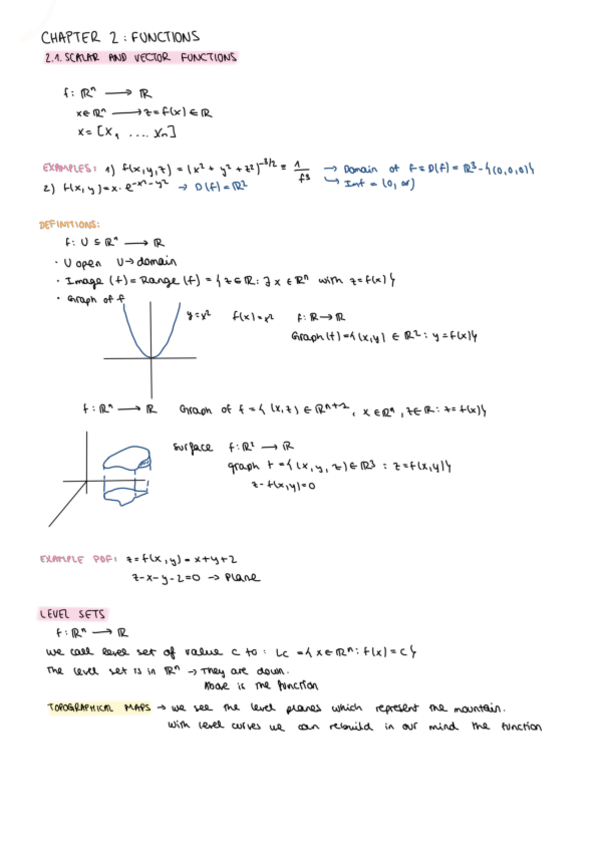 CHAPTER 2: FUNCTIONS
2.1. SCALAR AND VECTOR FUNCTIONS
f: ℝⁿ ⟶ ℝ
x∈ℝⁿ ⟶ z=f(x)∈ℝ
x=[x₁ .... xₙ]
EXAMPLES: 1) f(x,y,z) = (x²+y²+z²)^(-3/2) = 1/r³ → Domain of f = D(f) = ℝ³-{(0,0,0)}
↳ Int = (0,∞)
2) f(x,y)=x·e^(-x²-y²) → D(f)=ℝ²
DEFINITIONS:
f: U ⊆ ℝⁿ ⟶ ℝ
· U open U→domain
· Image (f)=Range (f) = {z∈ℝ: ∃ x ∈ ℝⁿ with z=f(x)}
· Graph of f
y=x² f(x)=x² f: ℝ→ℝ
Graph(f)={(x,y) ∈ ℝ²: y=f(x)}
f: ℝⁿ ⟶ ℝ Graph of f = {(x,z) ∈ ℝⁿ⁺¹, x∈ℝⁿ, z∈ℝ: z=f(x)}
Surface f: ℝ² ⟶ ℝ
graph f = {(x,y,z)∈ℝ³ : z=f(x,y)}
z-f(x,y)=0
EXAMPLE PDF: z=f(x,y)=x+y+2
z-x-y-2=0 → Plane
LEVEL SETS
f: ℝⁿ ⟶ ℝ
We call level set of value c to: Lc={x∈ℝⁿ: f(x)=c}
The level set is in ℝⁿ → They are down.
Above is the function
TOPOGRAPHICAL MAPS → we see the level planes which represent the mountain.
With level curves we can rebuild in our mind the function